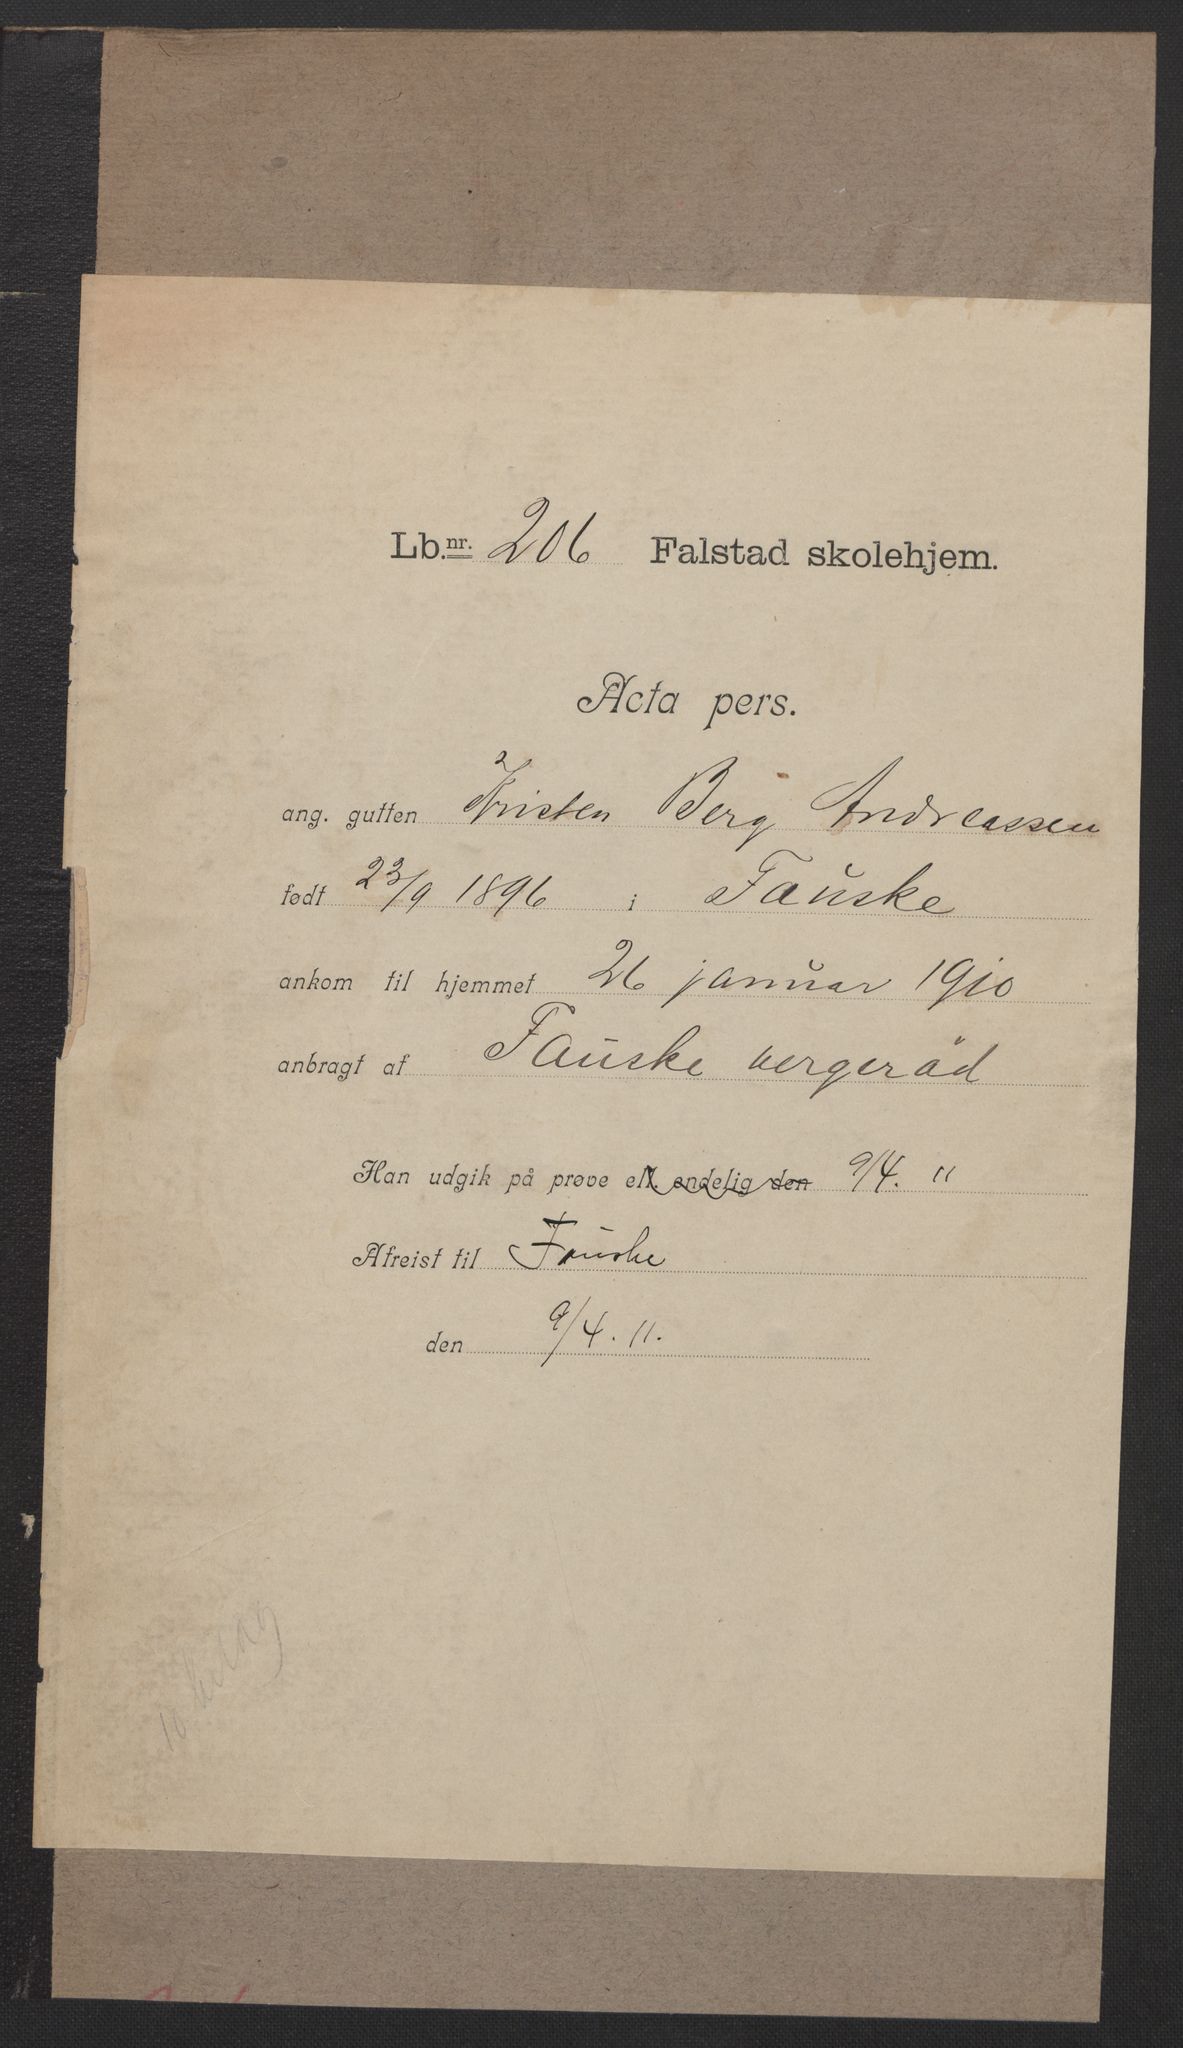 Lb.nr. 206 Falstad skolehjem.
Acta pers.
ang. gutten Kristen Berg Andreassen
født 23/9 1896 i Fauske
ankom til hjemmet 26 januar 1910
anbragt af Fauske vergeråd
Han udgik på prøve ell. endelig den 9/4. 11
Afreist til Fauske
den 9/4. 11.